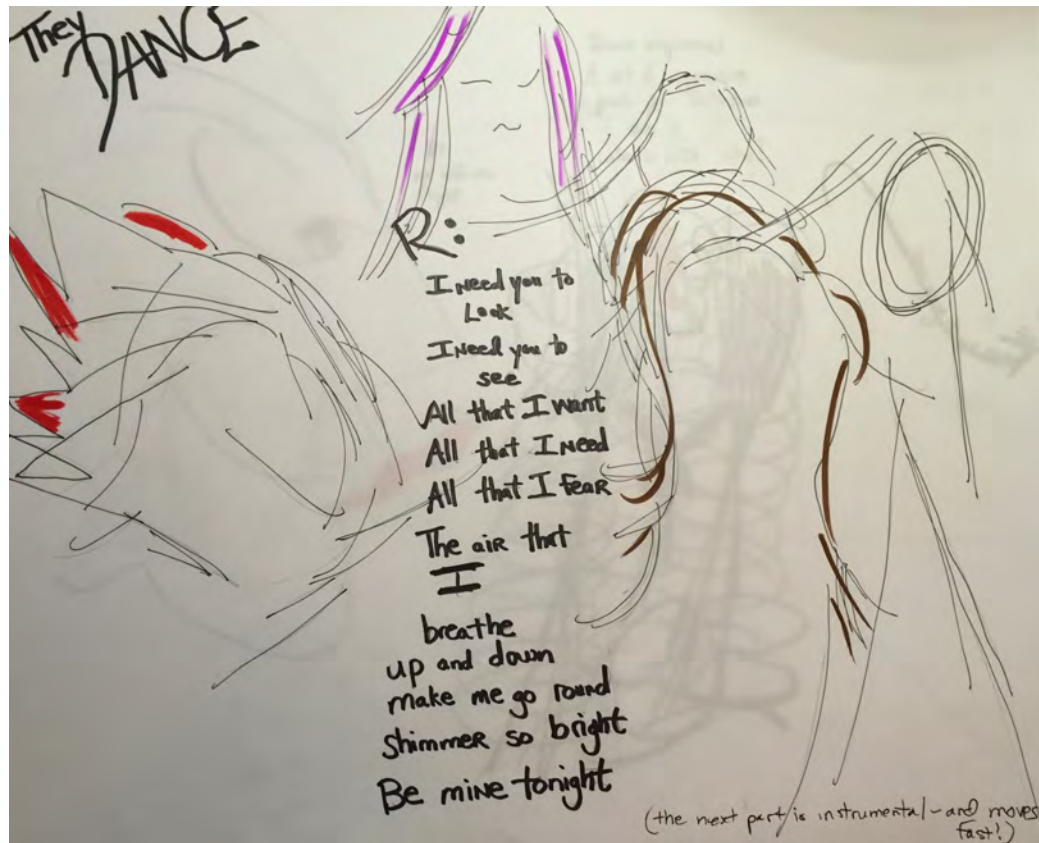 They
DANCE
R:
I need you to
Look
I need you to
see
All that I want
All that I need
All that I fear
The air that
I
breathe
up and down
make me go round
shimmer so bright
Be mine tonight
(the next part is instrumental - and moves
fast!)